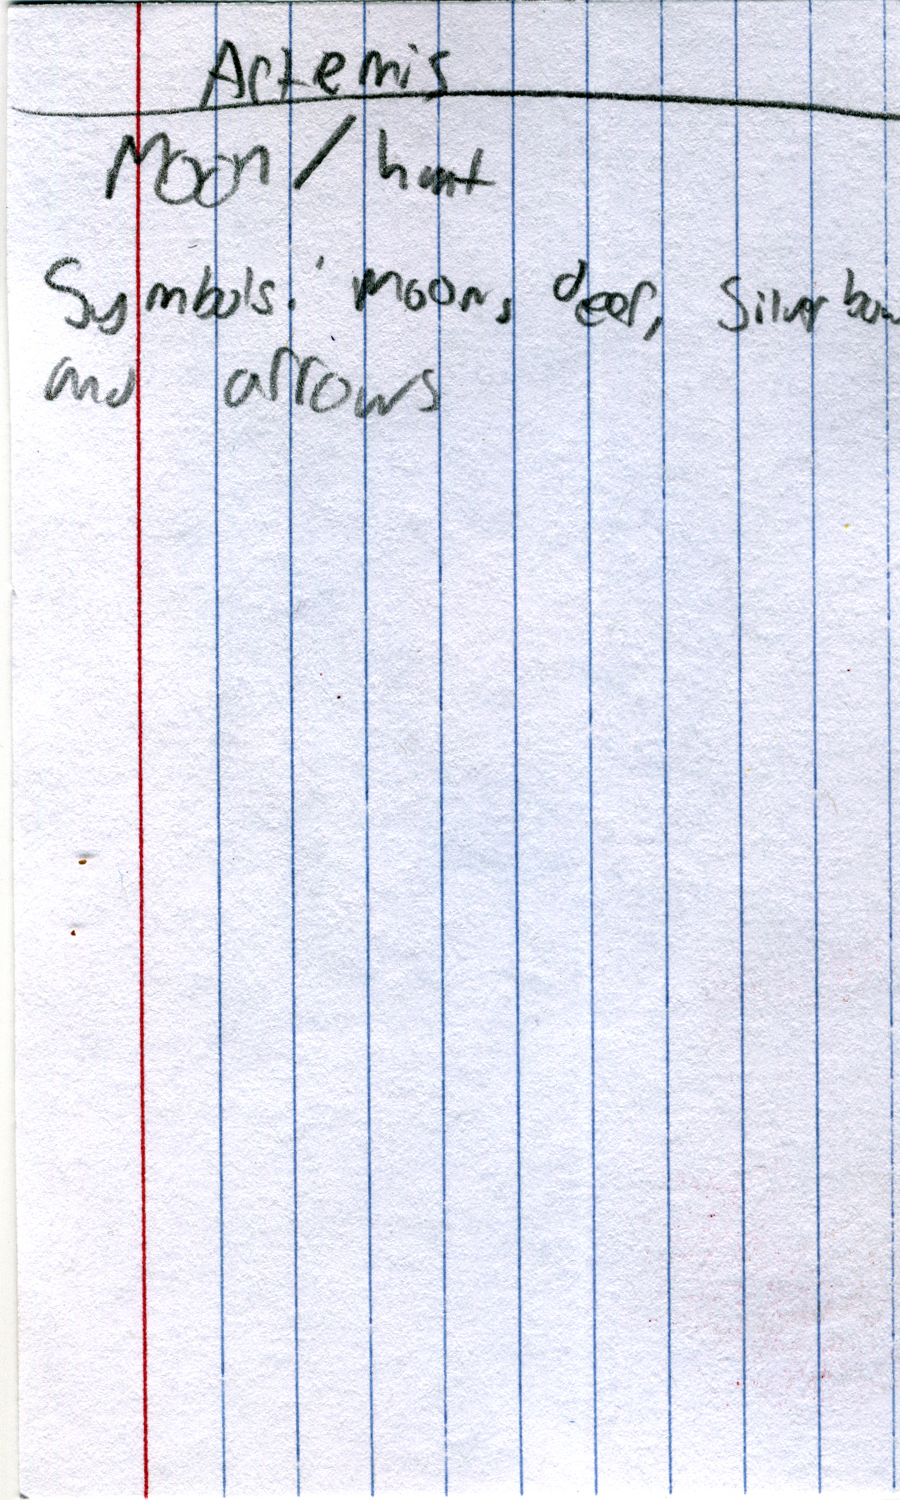 Artemis
Moon / hunt
Symbols: moon, deer, Silver bow
and arrows